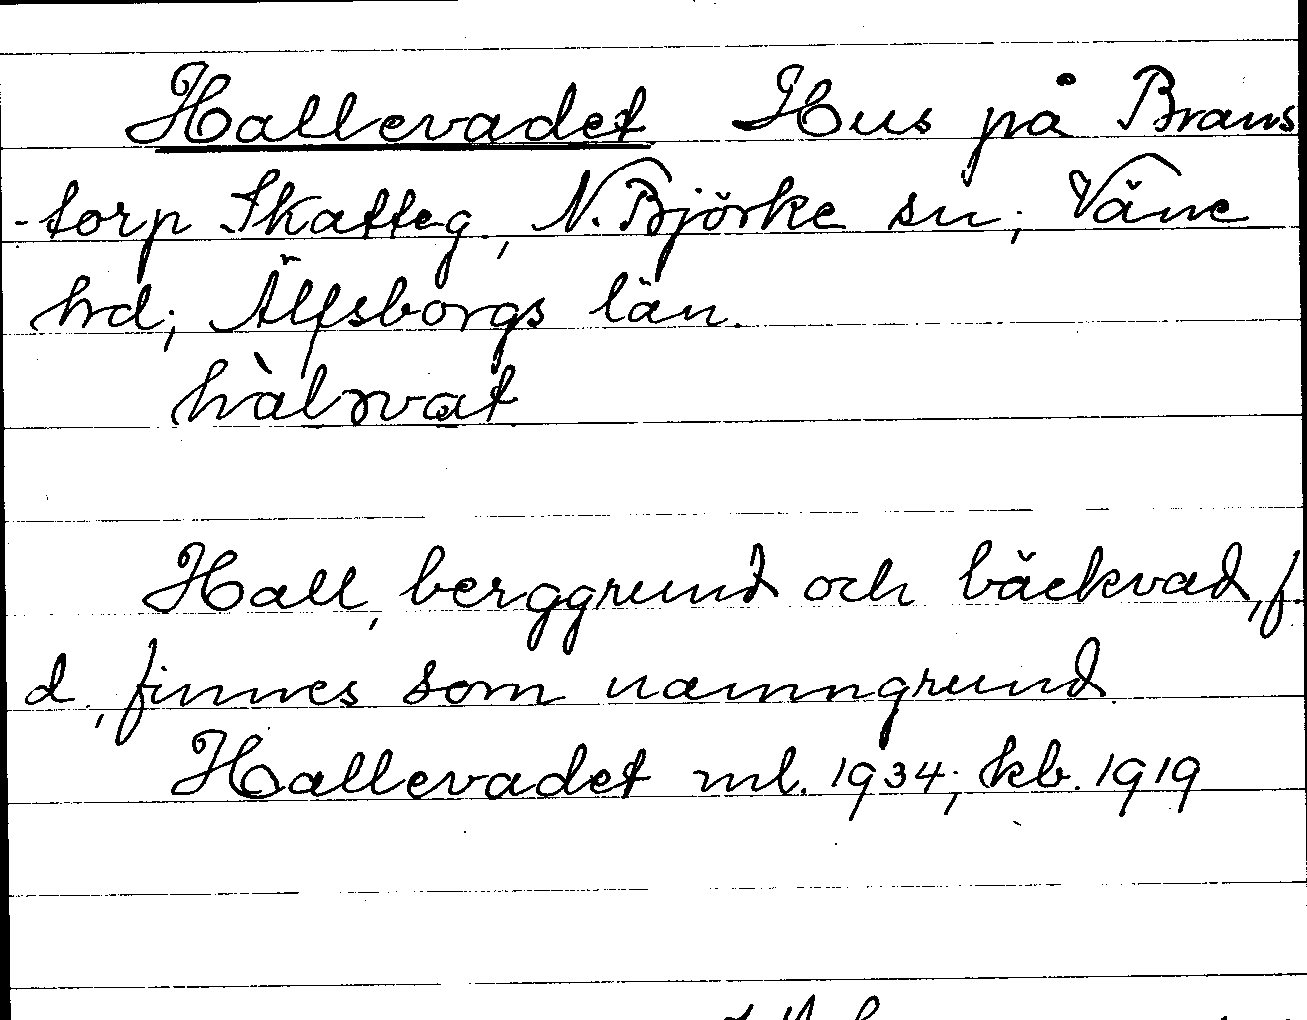 Hallevadet Hus på Brans
-torp Skatteg., N. Björke sn; Väne
hrd; Älfsborgs län.
Hall, berggrund och bäckvad, f.
d., finnes som namngrund.
Hallevadet ml. 1934; kb. 1919